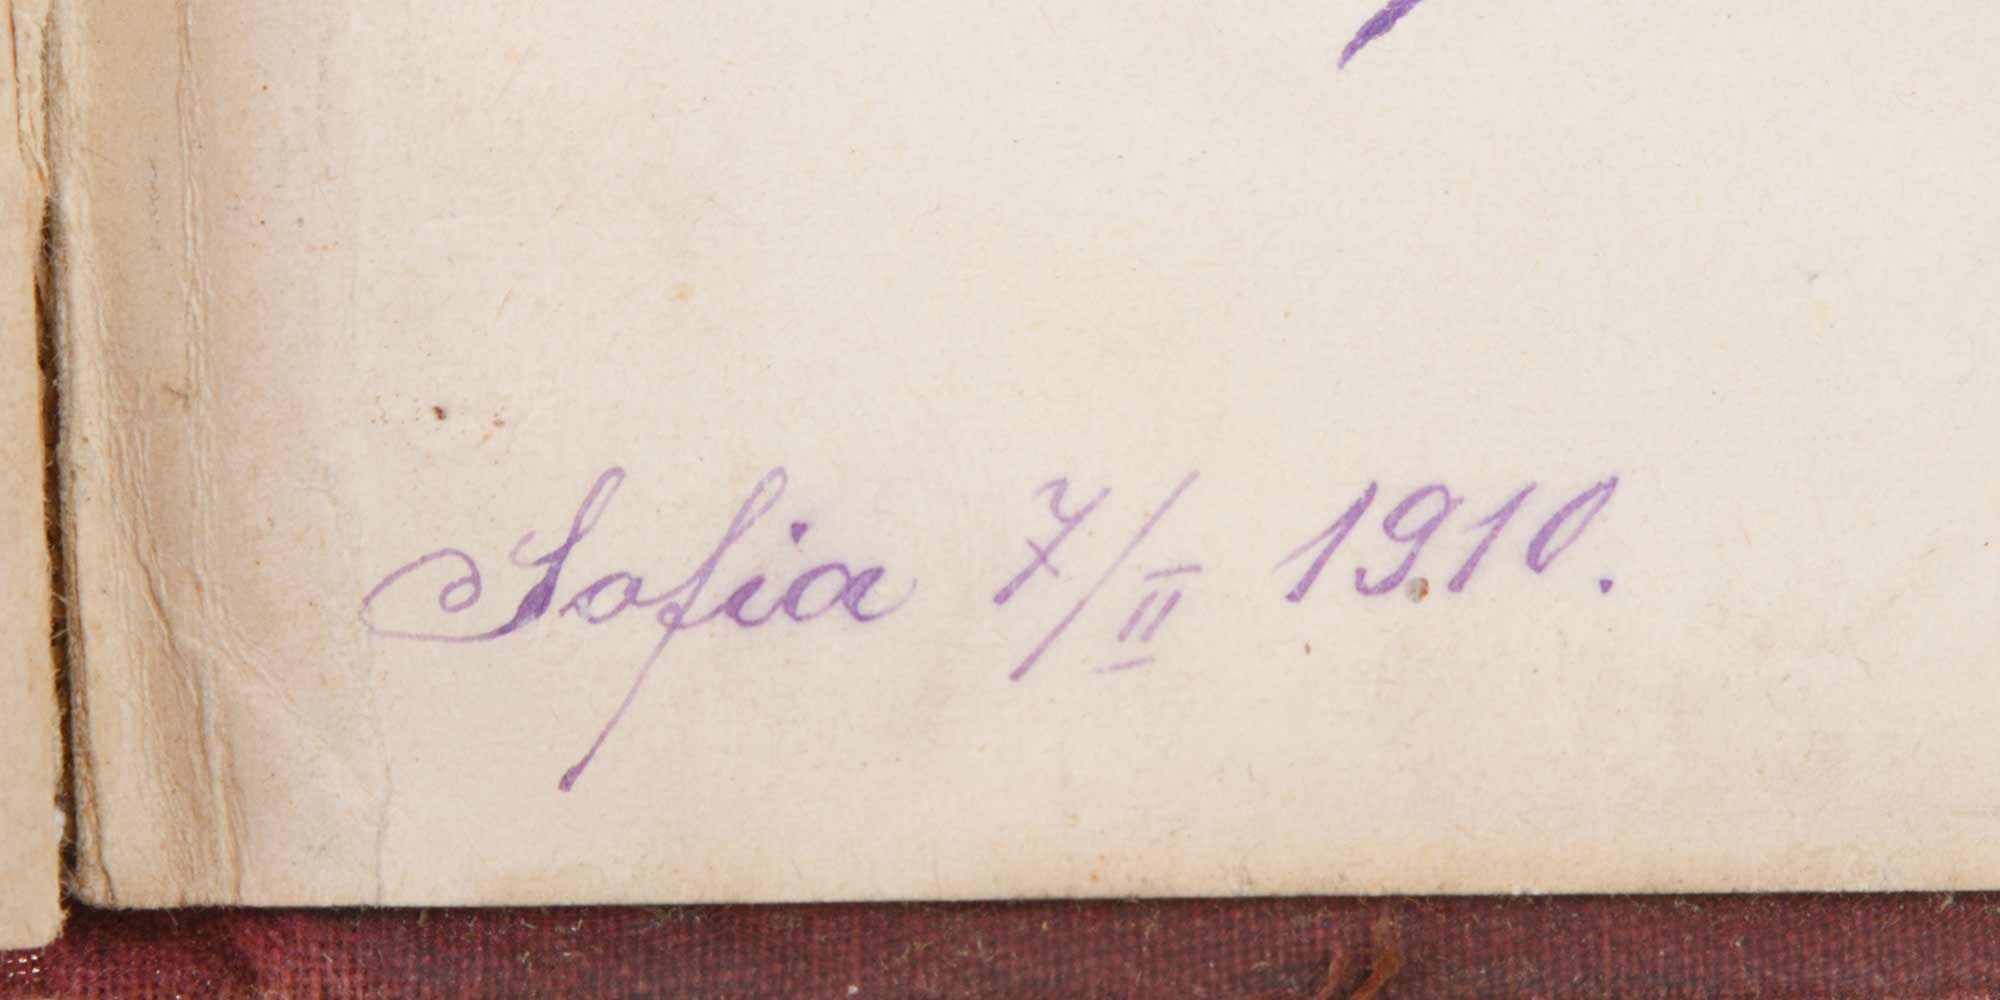 Sofia 7/II 1910.